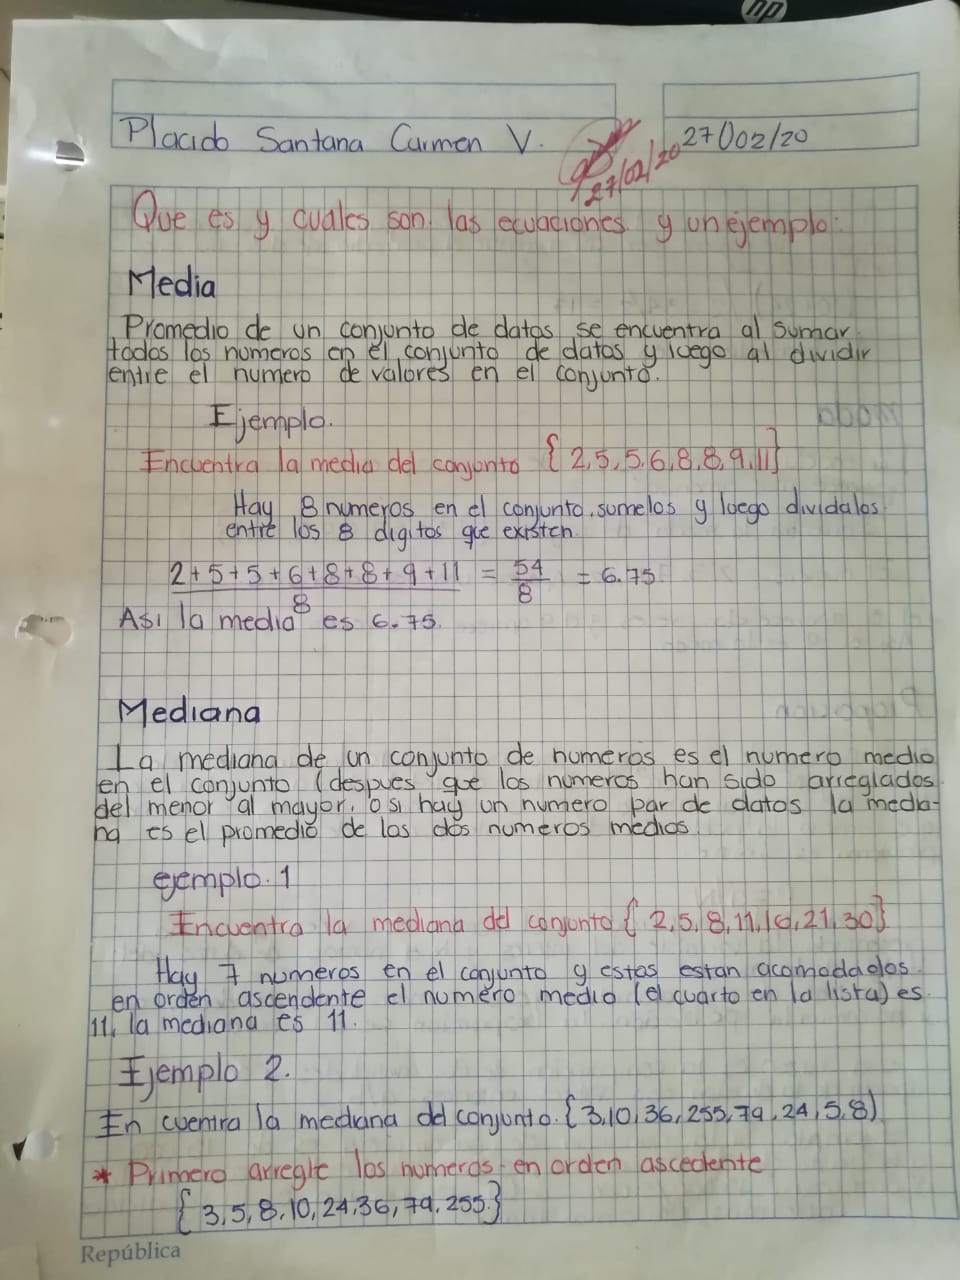 hp
Placido Santana Carmen V.
27/02/20
27/02/20
Que es y cuales son las ecuaciones y un ejemplo:
Media
Promedio de un conjunto de datos se encuentra al sumar
todos los numeros en el conjunto de datos y luego al dividir
entre el numero de valores en el conjunto.
Ejemplo.
Encuentra la media del conjunto {2,5,5,6,8,8,9,11}
Hay 8 numeros en el conjunto, sumelos y luego dividalos
entre los 8 digitos que existen.
2+5+5+6+8+8+9+11 = 54 = 6.75
8 8
Asi la media es 6.75.
Mediana
La mediana de un conjunto de numeros es el numero medio
en el conjunto (despues que los numeros han sido arreglados
del menor al mayor, o si hay un numero par de datos la media-
na es el promedio de los dos numeros medios.
ejemplo.1
Encuentra la mediana del conjunto {2,5,8,11,16,21,30}
Hay 7 numeros en el conjunto y estos estan acomodados
en orden ascendente el numero medio (el cuarto en la lista) es
11, la mediana es 11.
Ejemplo 2.
En cuentra la mediana del conjunto.{3,10,36,255,79,24,5,8)
* Primero arregle los numeros en orden ascedente
{3,5,8,10,24,36,79,255.}
República